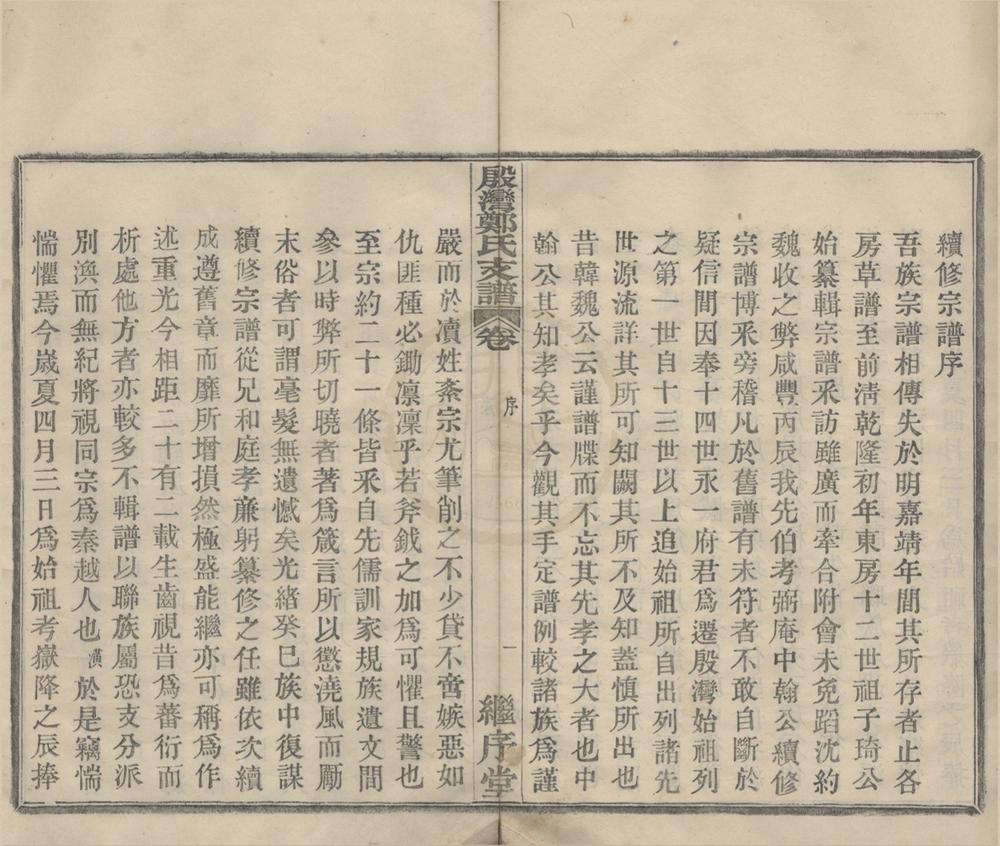 續修宗譜序
吾族宗譜相傳失於明嘉靖年間其所存者止各
房草譜至前淸乾隆初年東房十二世祖子琦公
始纂輯宗譜采訪雖廣而牽合附會未免蹈沈約
魏收之弊咸豐丙辰我先伯考弼庵中翰公續修
宗譜博釆旁稽凡於舊譜有未符者不敢自斷於
疑信間因奉十四世永一府君爲遷殷灣始祖列
之第一世自十三世以上追始祖所自出列諸先
世源流詳其所可知闕其所不及知蓋愼所出也
昔韓魏公云謹譜牒而不忘其先孝之大者也中
翰公其知孝矣乎今觀其手定譜例較諸族爲謹
殷灣鄭氏支譜 卷 序 一 繼序堂
嚴而於凟姓紊宗尤筆削之不少貸不啻嫉惡如
仇匪種必鋤凛凛乎若斧鉞之加爲可懼且警也
至宗約二十一條皆釆自先儒訓家規族遺文間
參以時弊所切曉者著爲箴言所以懲澆風而勵
末俗者可謂毫髮無遺憾矣光緖癸巳族中復謀
續修宗譜從兄和庭孝亷躬纂修之任雖依次續
成遵舊章而靡所增損然極盛能繼亦可稱爲作
述重光今相距二十有二載生齒視昔爲蕃衍而
析處他方者亦較多不輯譜以聯族屬恐支分派
別渙而無紀將視同宗爲秦越人也潢於是竊惴
惴懼焉今嵗夏四月三日爲始祖考嶽降之辰捧